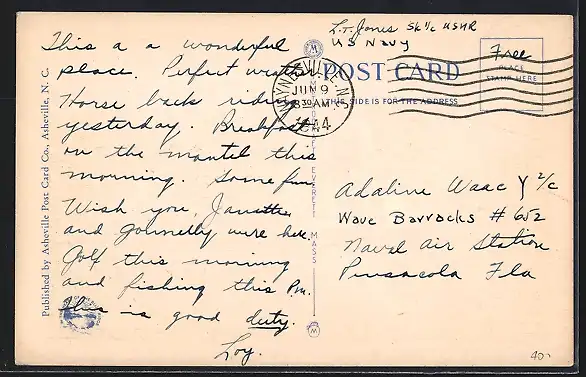 L.T. Jones Sk 1/c USNR
US Navy
Free
PLACE
STAMP HERE
POST CARD
THIS SIDE IS FOR THE ADDRESS
WAYNESVILLE, N.C.
JUN 9
8 30 AM
1944
This a a wonderful
place. Perfect weather
Horse back riding
yesterday. Breakfast
on the mantel this
morning. Some fun
Wish you,
and were here.
Golf this morning
and fishing this P.m.
this is good duty.
Loy.
Adaline Waac Y 2/c
Wave Barracks # 652
Naval Air Station
Pensacola Fla
Published by Asheville Post Card Co., Asheville, N. C.
EVERETT MASS
40